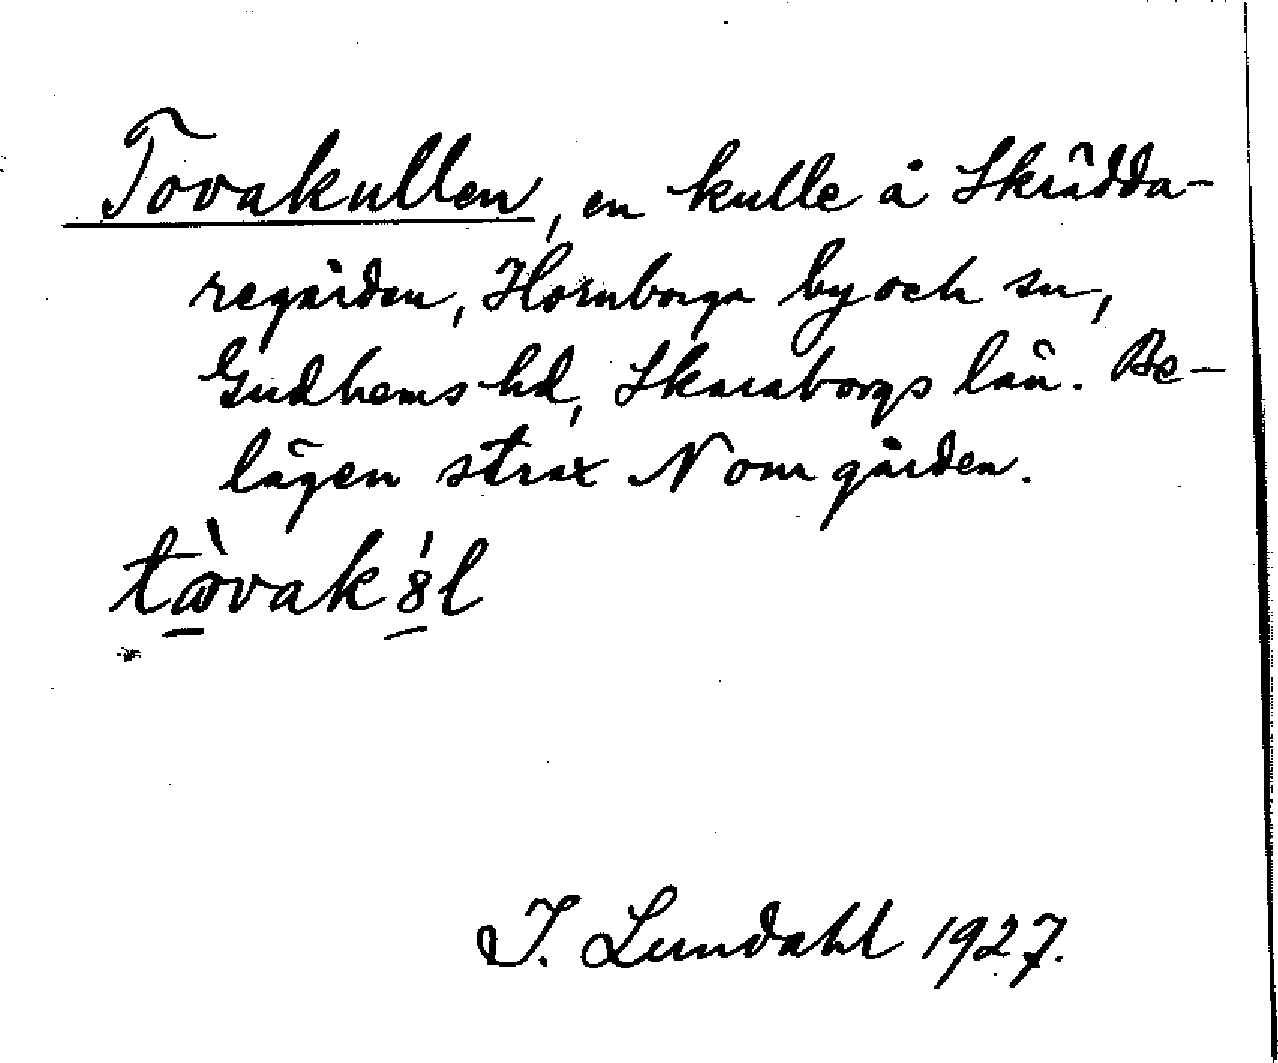 Tovakullen, en kulle å Skrädda-
regården, Hornborga by och sn,
Gudhems hd, Skaraborgs län. Be-
lägen strax N om gården.
I. Lundahl 1927.